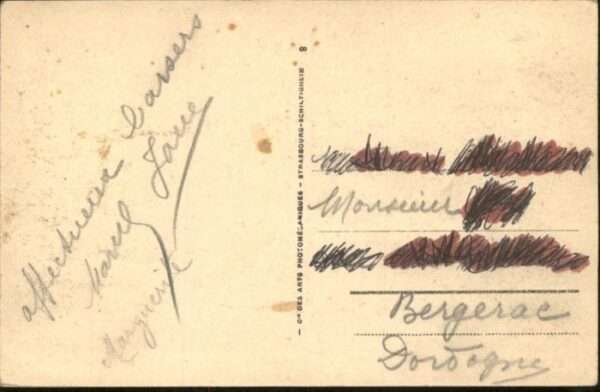 affectueux baisers
Marcel
Marguerite
8
— Cie DES ARTS PHOTOMÉCANIQUES — STRASBOURG-SCHILTIGHEIM
Monsieur
Bergerac
Dordogne